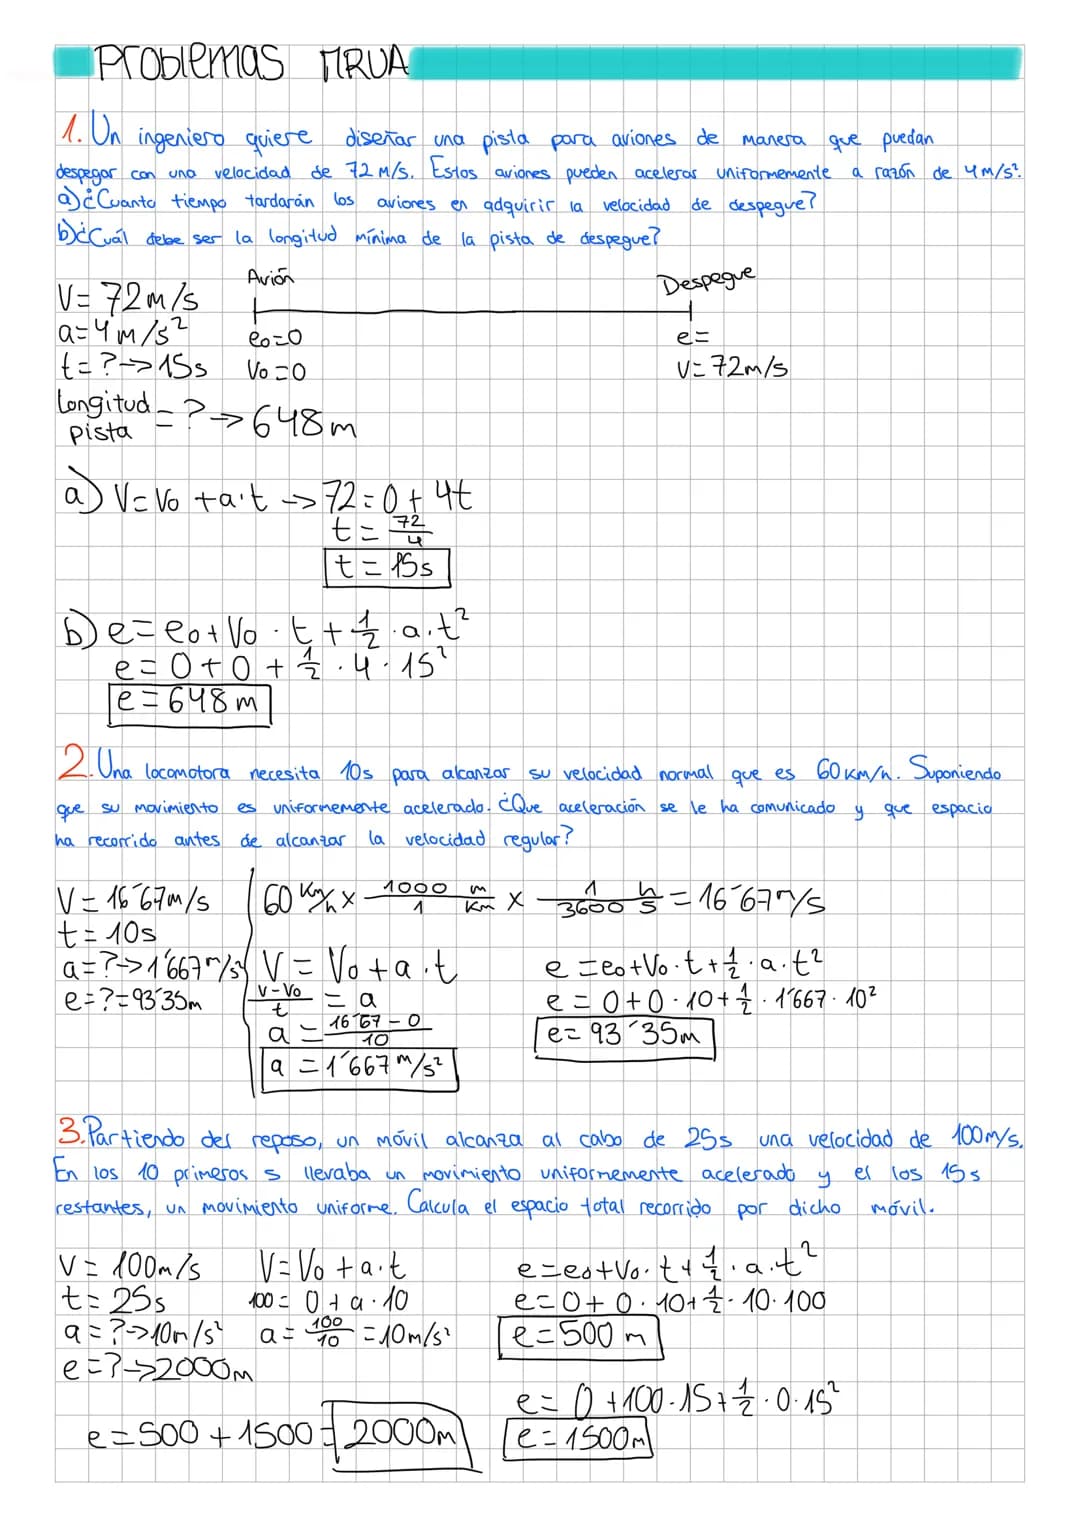 Problemas MRUA
1. Un ingeniero quiere diseñar una pista para aviones de manera que puedan
despegar con una velocidad de 72 m/s. Estos aviones pueden aceleras uniformemente a razón de 4m/s².
a) ¿Cuanto tiempo tardarán los aviones en adquirir la velocidad de despegue?
b) ¿Cuál debe ser la longitud mínima de la pista de despegue?
Avión Despegue
V= 72m/s
a=4m/s² e₀=0 e=
t=?->15s V₀=0 V=72m/s
Longitud pista =?->648m
a) V=V₀+a·t -> 72=0+4t
t= 72/4
t=15s
b) e=e₀+V₀·t+1/2·a·t²
e=0+0+1/2·4·15²
e=648m
2. Una locomotora necesita 10s para alcanzar su velocidad normal que es 60km/h. Suponiendo
que su movimiento es uniformemente acelerado. ¿Que aceleración se le ha comunicado y que espacio
ha recorrido antes de alcanzar la velocidad regular?
V=16´67m/s 60 Km/h x 1000/1 m/Km x 1/3600 h/s = 16´67m/s
t=10s
a=?->1´667m/s² V=V₀+a·t e=e₀+V₀·t+1/2·a·t²
e=?=93´35m V-V₀/t = a e=0+0·10+1/2·1´667·10²
a= 16´67-0/10 e=93´35m
a=1´667m/s²
3. Partiendo des reposo, un móvil alcanza al cabo de 25s una velocidad de 100m/s.
En los 10 primeros s llevaba un movimiento uniformemente acelerado y el los 15s
restantes, un movimiento uniforme. Calcula el espacio total recorrido por dicho móvil.
V=100m/s V=V₀+a·t e=e₀+V₀·t+1/2·a·t²
t=25s 100=0+a·10 e=0+0·10+1/2·10·100
a=?->10m/s² a=100/10=10m/s² e=500m
e=?->2000m
e=0+100·15+1/2·0·15²
e=500+1500=2000m e=1500m